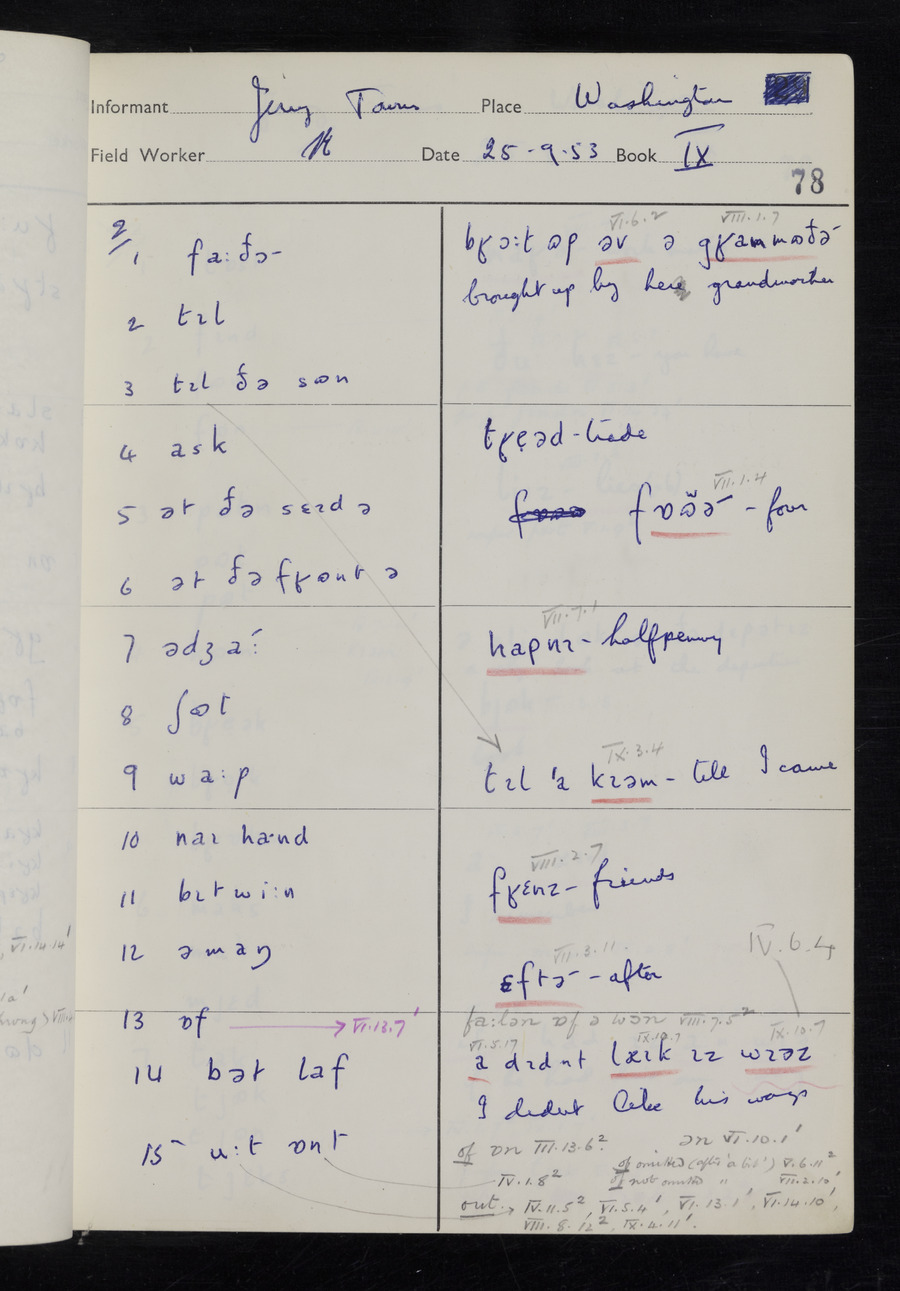 Informant Jerry Place Washington
Field Worker Date 25-9-53 Book IX
78
2
1 fa:ðɚ
2 tɪl
3 tɪl ðə sʊn
4 ask
5 ət ðə sɛɪd ə
6 ət ðə fʁʊnt ə
7 ədʒa˞:
8 ʃʊt
9 wa:p
10 naɪ ha·nd
11 bɪtwi:n
12 əmaŋ
13 ɒf → VI.13.7'
14 bət laf
15 u:t ɒnt
VI.6.2 VIII.1.7
bʁɔ:t ʊp əv ə gʁammʊðɚ
brought up by here grandmother
tʁẹəd - trade
VII.1.4
- four
VII.7.1
hapnɪ - halfpenny
IX.3.4
tɪl 'a kɪəm - till I came
VIII.2.7
fʁɛnz - friends
IV.6.4
VII.3.11.
ɛftɚ - after
fa:lən ɒf ə wɔn VIII.7.5² IX.10.7
VI.5.17 IX.10.7
a dɪdnt læɪk ɪz wɪəz
I didnt like his ways
of ɒn III.13.6² ən VI.10.1'
IV.1.8² of omitted (after 'a bit') V.6.11²
of not omitted " VII.2.10'
out → IV.11.5², VI.5.4', VI.13.1', VI.14.10',
VIII.8.12², IX.4.11'.
VI.14.14'